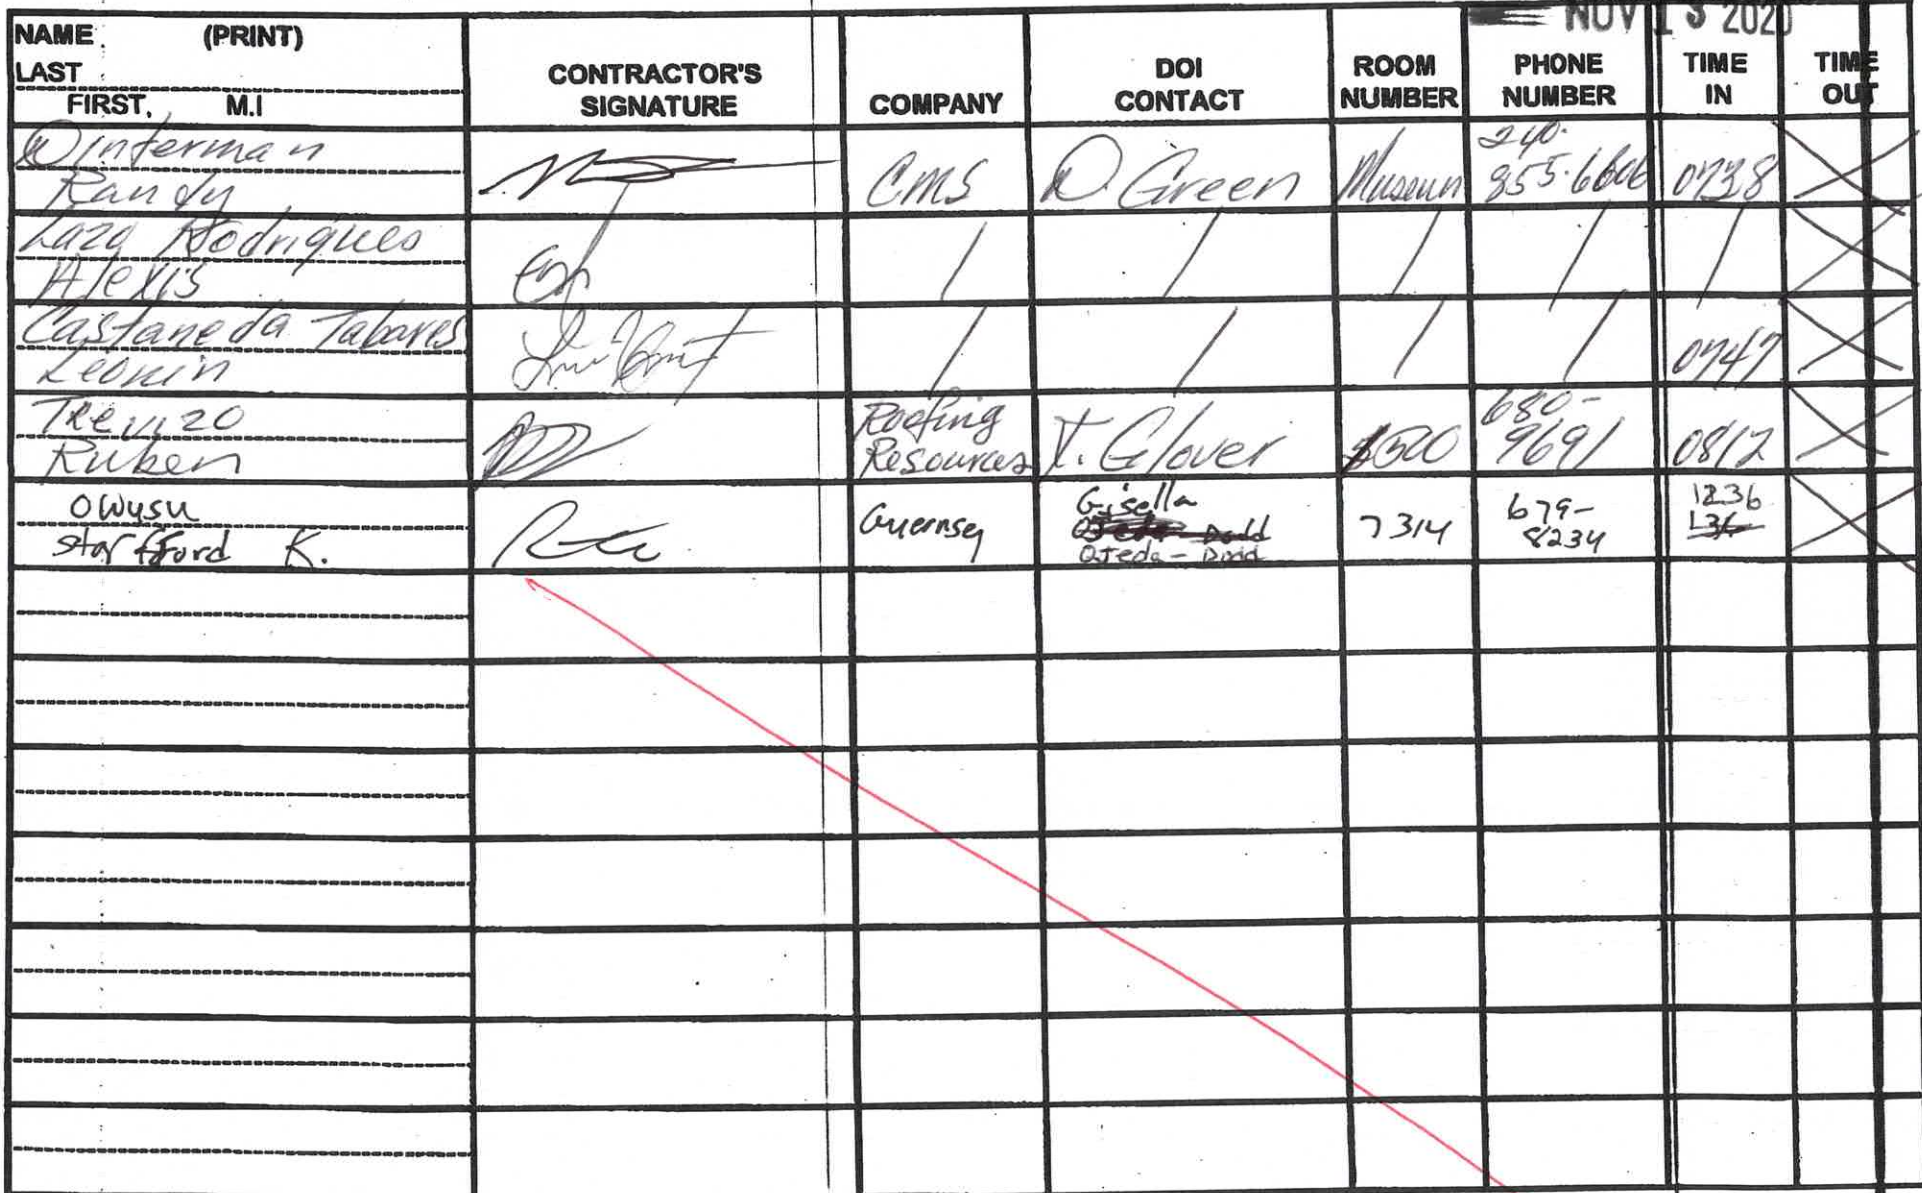 NOV 13 2020
NAME (PRINT)
LAST
FIRST, M.I
CONTRACTOR'S SIGNATURE
COMPANY
DOI CONTACT
ROOM NUMBER
PHONE NUMBER
TIME IN
TIME OUT
Winterman
Randy
CMS
D. Green
Museum
240-
855-6606
0738
Lazo Rodrigues
Alexis
/ / / / /
Castaneda Tabares
Leonin
/ / / /
0747
Trevizo
Ruben
Roofing
Resources
T. Glover
1500
680-
9691
0812
Owusu
Starfford K.
Guernsey
Gisella
Ojeda - Dodd
7314
679-
8234
1236